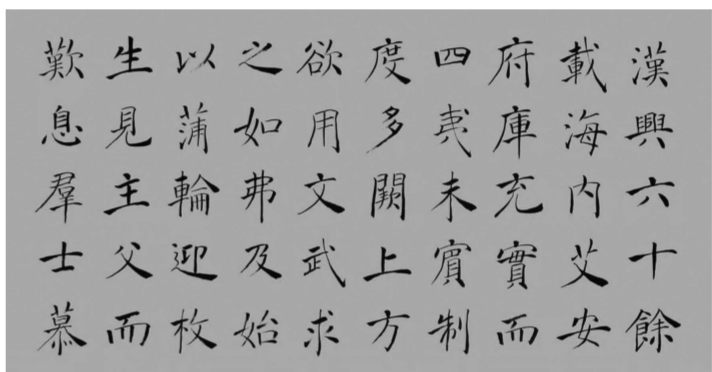 漢興六十餘
載海内艾安
府庫充實而
四夷未賓制
度多闕上方
欲用文武求
之如弗及始
以蒲輪迎枚
生見主父而
歎息羣士慕